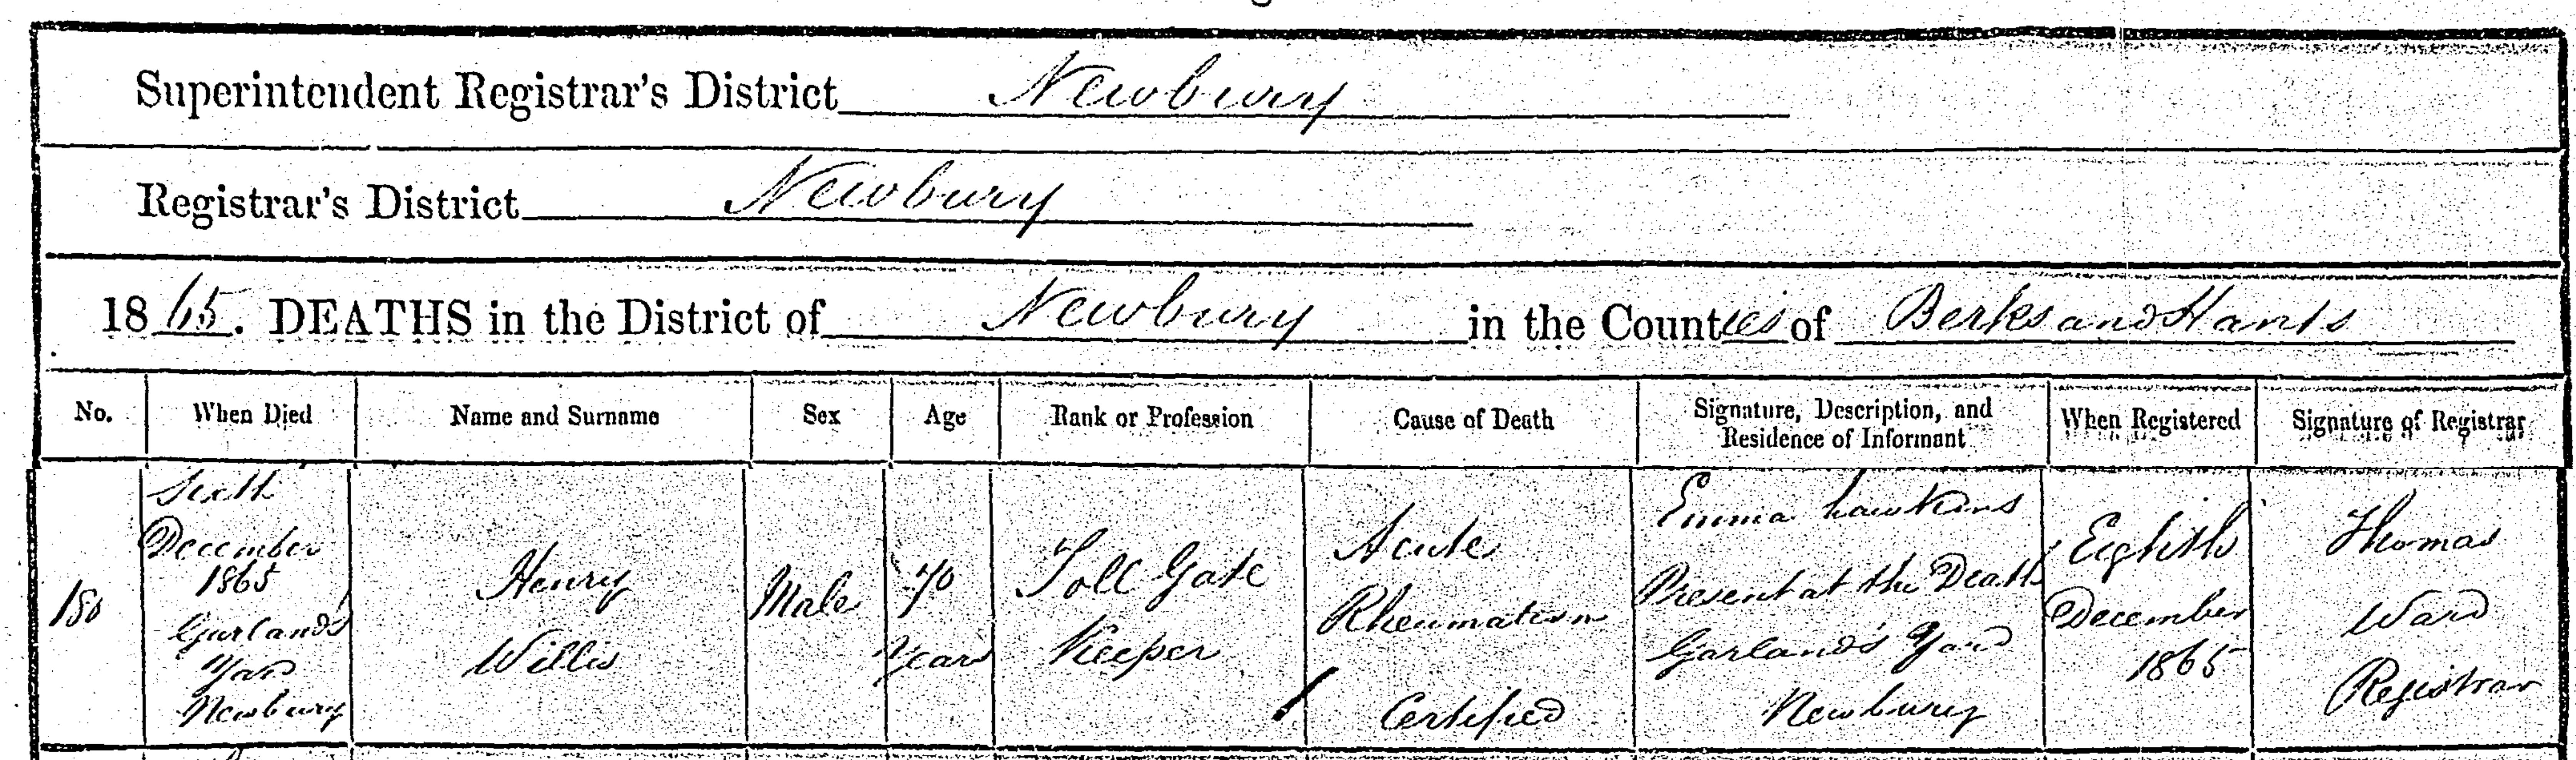 Superintendent Registrar's District Newbury
Registrar's District Newbury
1865. DEATHS in the District of Newbury in the Counties of Berks and Hants
No. When Died Name and Surname Sex Age Rank or Profession Cause of Death Signature, Description, and Residence of Informant When Registered Signature of Registrar
150
Sixth
December
1865
Garlands
Yard
Newbury
Henry
Willis
Male
70
Years
Toll Gate
Keeper
Acute
Rheumatism
Certified
Emma Hawkins
Present at the Death
Garland's Yard
Newbury
Eighth
December
1865
Thomas
Ward
Registrar